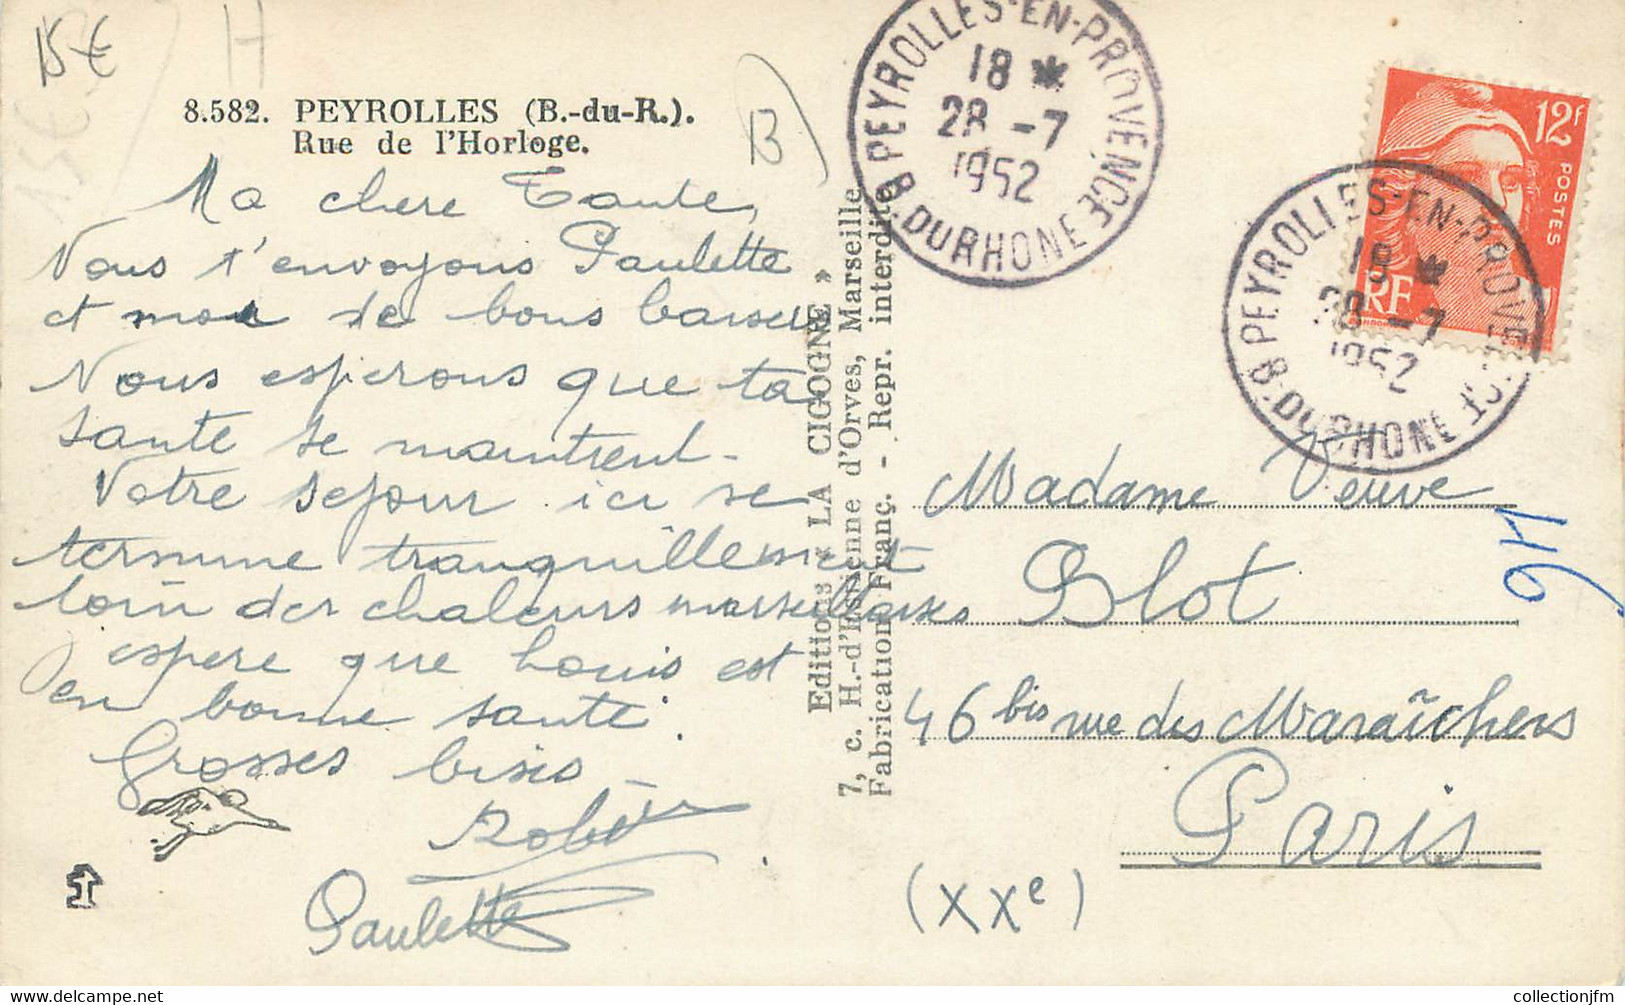 15€
H
15€
B
8.582. PEYROLLES (B.-du-R.).
Rue de l'Horloge.
Ma chere Tante,
Vous t'envoyons Paulette
et moi de bons baisers
Nous esperons que ta
sante se maintient.
Notre sejour ici se
termine tranquillement
loin des chaleurs marseillaises
espere que Louis est
en bonne santé.
Grosses bises
Robert
Paulette
Editions « LA CIGOGNE »
7, c. H.-d'Estienne d'Orves, Marseille
Fabrication Franç. - Repr. interdite
PEYROLLES-EN-PROVENCE
18 *
28 -7
1952
B. DU RHONE
12F
POSTES
RF
PEYROLLES-EN-PROVENCE
18 *
28 -7
1952
B. DU RHONE
Madame Veuve
Blot
46 bis rue des Maraîchers
Paris
(XXe)
collectionjfm